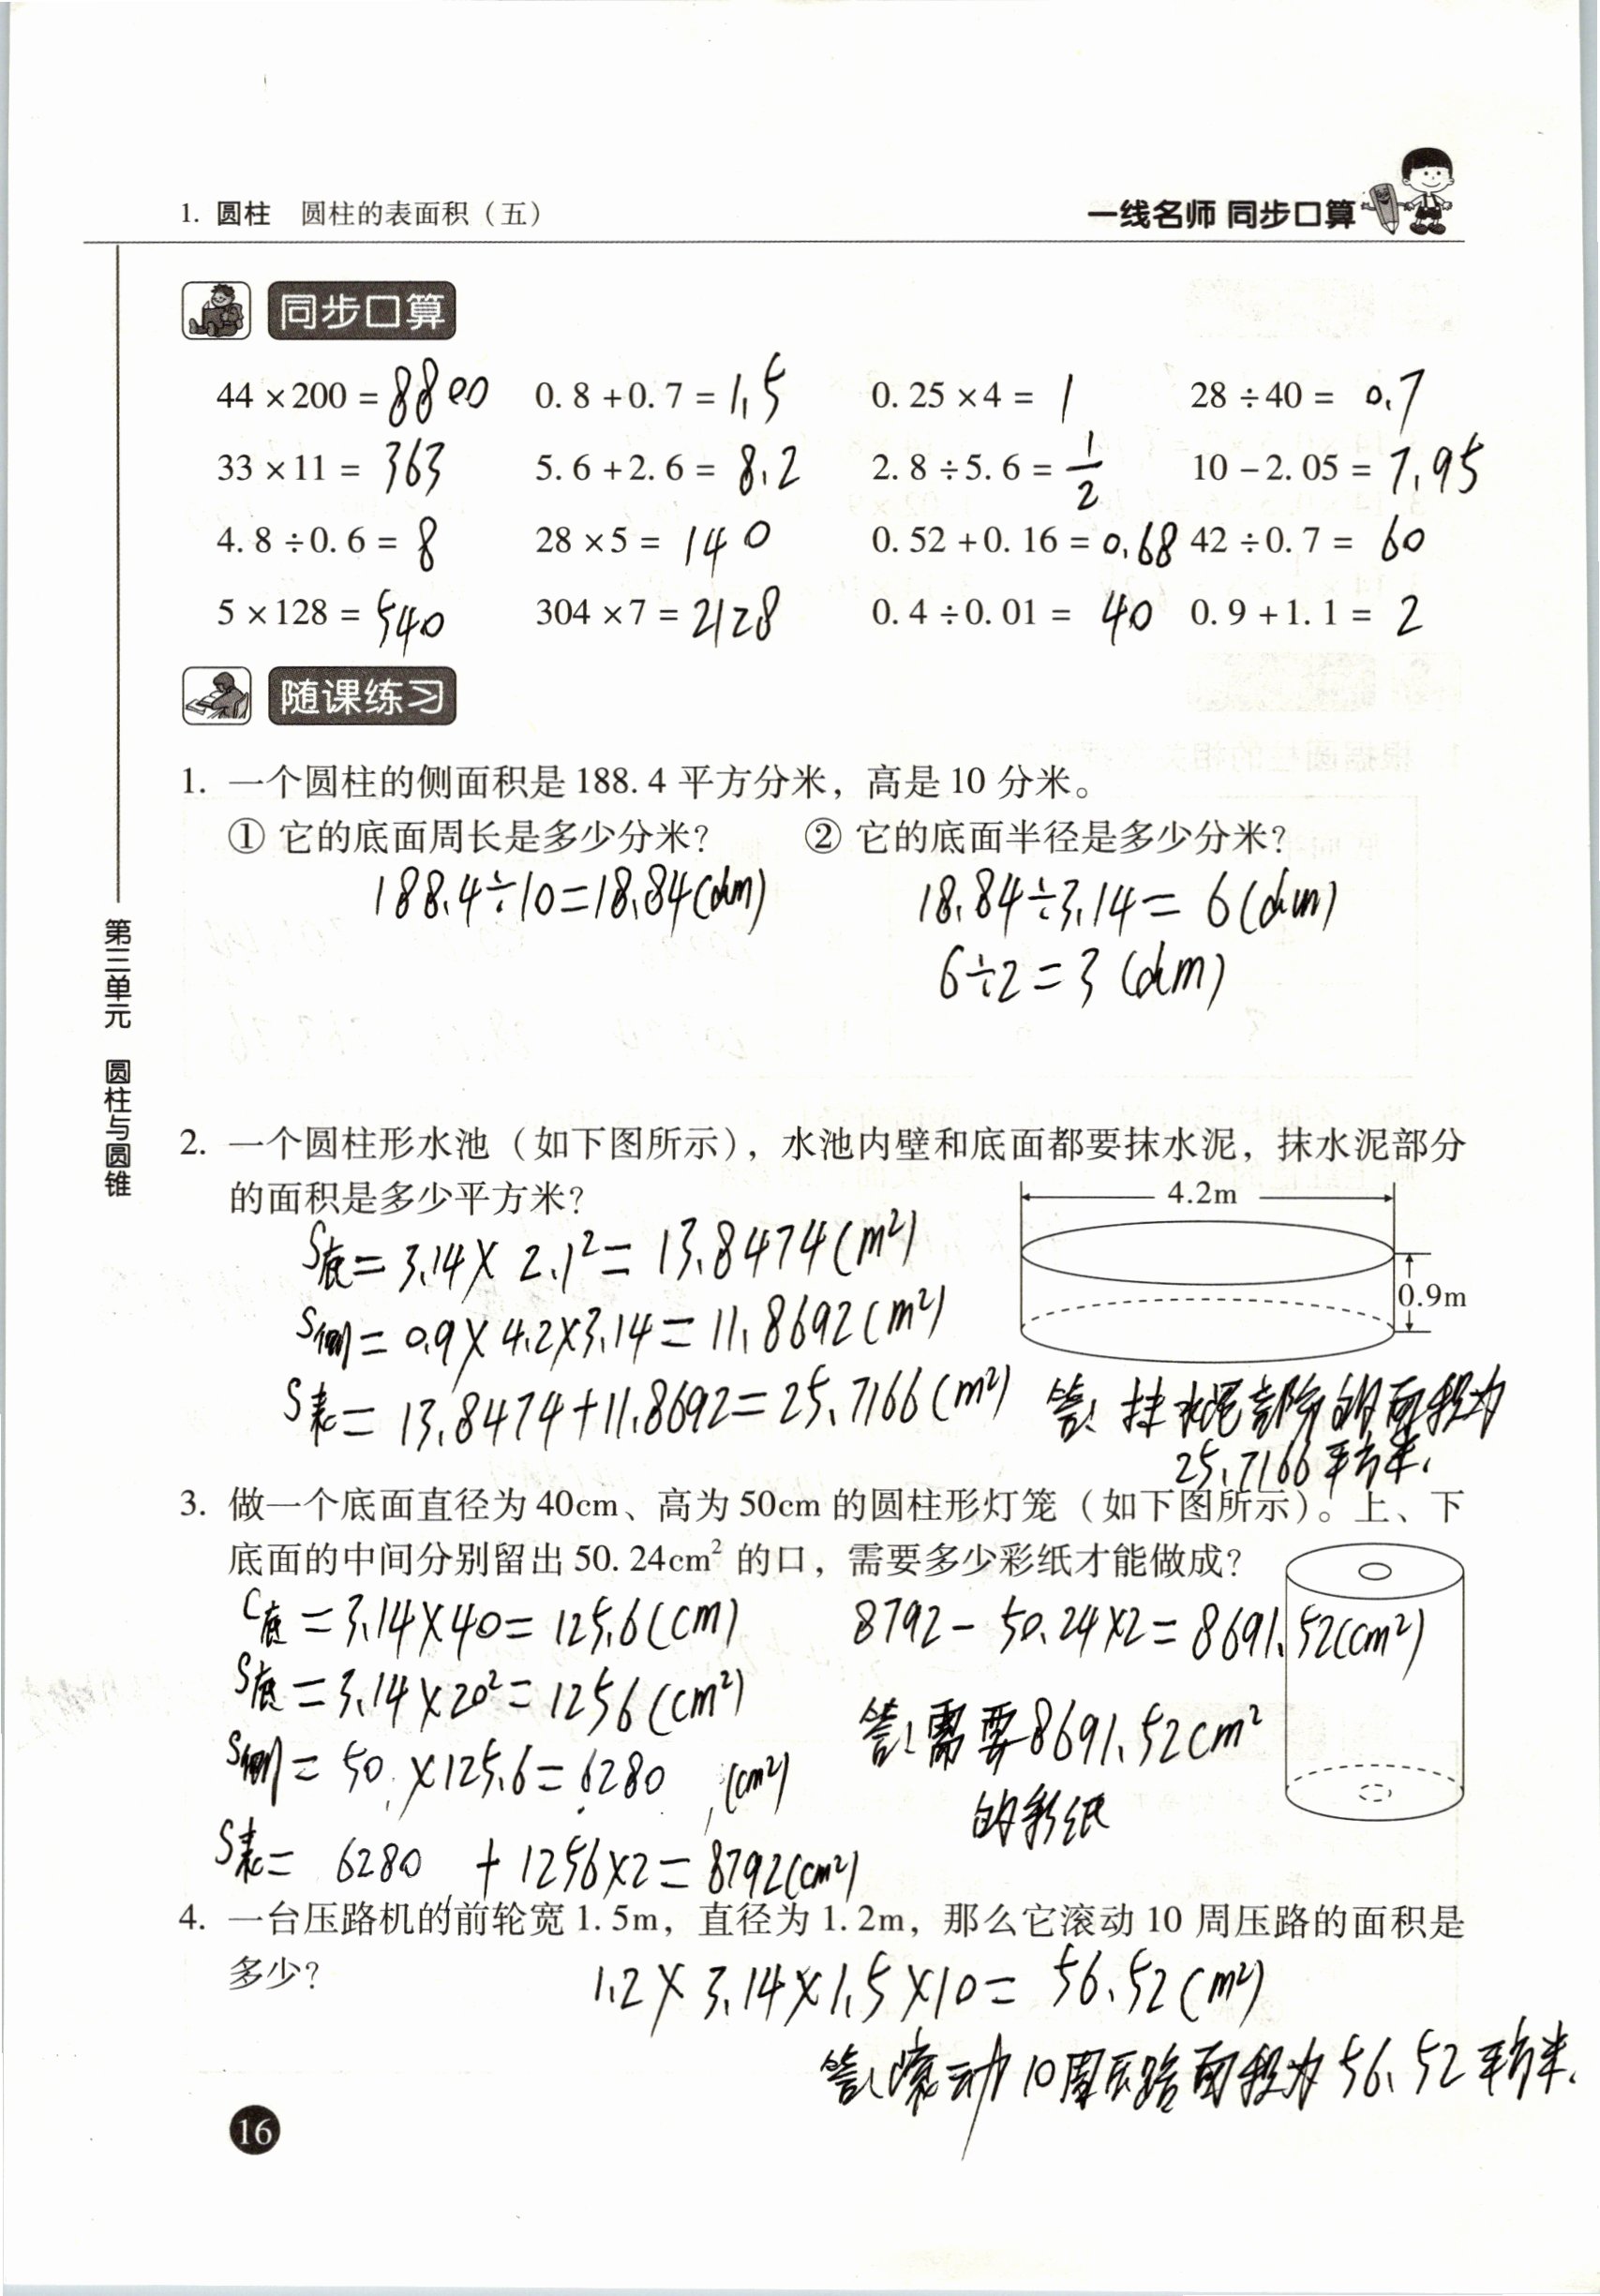 1. 圆柱 圆柱的表面积（五）
一线名师 同步口算
同步口算
44×200=8800 0.8+0.7=1.5 0.25×4=1 28÷40=0.7
33×11=363 5.6+2.6=8.2 2.8÷5.6=1/2 10-2.05=7.95
4.8÷0.6=8 28×5=140 0.52+0.16=0.68 42÷0.7=60
5×128=540 304×7=2128 0.4÷0.01=40 0.9+1.1=2
随课练习
1. 一个圆柱的侧面积是188.4平方分米，高是10分米。
① 它的底面周长是多少分米？ ② 它的底面半径是多少分米？
188.4÷10=18.84(dm) 18.84÷3.14=6(dm)
6÷2=3(dm)
第三单元 圆柱与圆锥
2. 一个圆柱形水池（如下图所示），水池内壁和底面都要抹水泥，抹水泥部分
的面积是多少平方米？
4.2m
0.9m
S底=3.14×2.1²=13.8474(m²)
S侧=0.9×4.2×3.14=11.8692(m²)
S表=13.8474+11.8692=25.7166(m²) 答：抹水泥部分的面积为
25.7166平方米.
3. 做一个底面直径为40cm、高为50cm的圆柱形灯笼（如下图所示）。上、下
底面的中间分别留出50.24cm²的口，需要多少彩纸才能做成？
C底=3.14×40=125.6(cm) 8792-50.24×2=8691.52(cm²)
S底=3.14×20²=1256(cm²)
答：需要8691.52cm²
S侧=50×125.6=6280(cm²)
的彩纸
S表=6280+1256×2=8792(cm²)
4. 一台压路机的前轮宽1.5m，直径为1.2m，那么它滚动10周压路的面积是
多少？
1.2×3.14×1.5×10=56.52(m²)
答：滚动10周压路面积为56.52平方米.
16